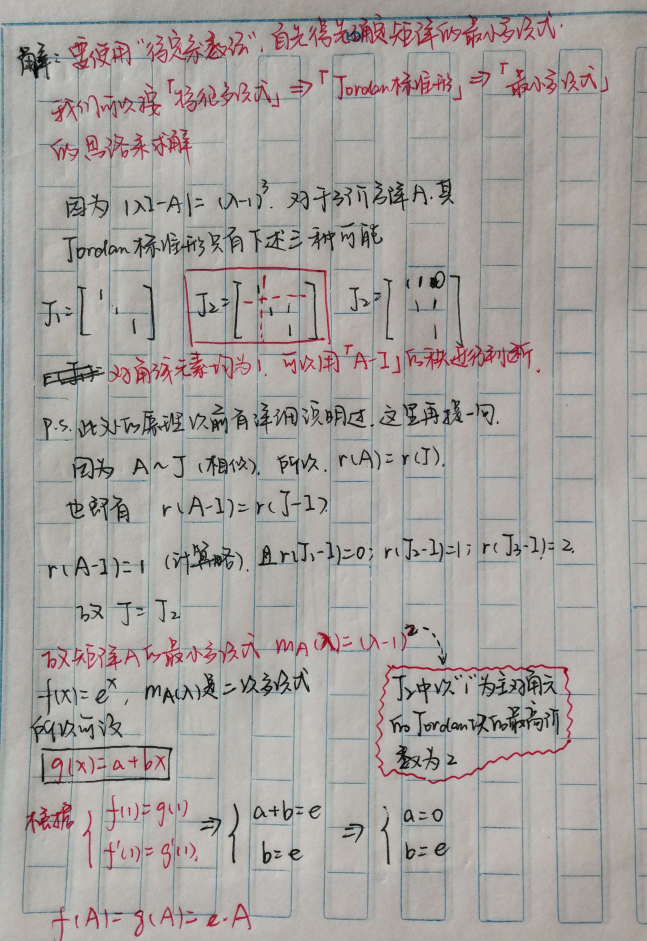 解：要使用“待定系数法”，首先得先确定矩阵的最小多项式．
我们可以按「特征多项式」⇒「Jordan标准形」⇒「最小多项式」
的思路来求解
因为 |λI-A|=(λ-1)³．对于3阶方阵A，其
Jordan标准形只有下述三种可能
J₁=[1 1 1] J₂=[1 1 1 1] J₂=[1 1 0 1 1 1]
对角线元素均为1，可以用「A-I」的秩进行判断．
P.S. 此处的原理以前有详细说明过，这里再提一句．
因为 A~J (相似)，所以，r(A)=r(J)．
也即有 r(A-I)=r(J-I)．
r(A-I)=1 (计算略)，且r(J₁-I)=0；r(J₂-I)=1；r(J₃-I)=2．
故 J=J₂
故矩阵A的最小多项式 m_A(λ)=(λ-1)²
f(x)=eˣ，m_A(λ)是二次多项式
所以可设
g(x)=a+bx
J₂中以“1”为主对角元
的Jordan块的最高阶
数为2
根据 { f(1)=g(1) ⇒ { a+b=e ⇒ { a=0
f'(1)=g'(1). b=e b=e
f(A)=g(A)=e·A